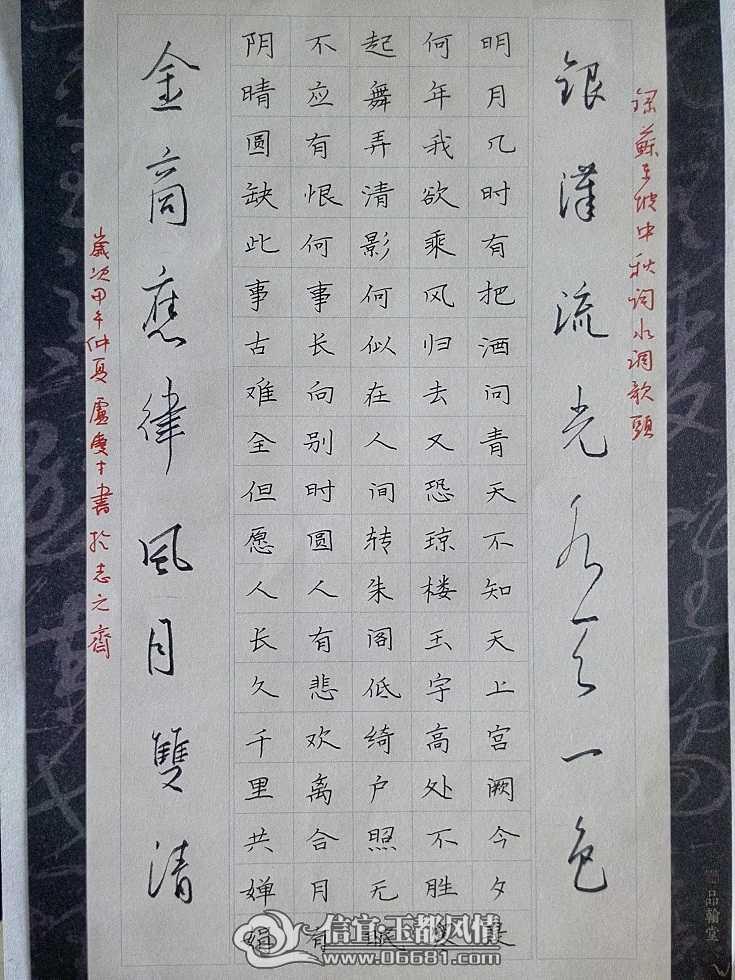 錄蘇东坡中秋词水调歌頭
銀漢流光水天一色
明月几时有把酒问青天不知天上宫阙今夕是
何年我欲乘风归去又恐琼楼玉宇高处不胜寒
起舞弄清影何似在人间转朱阁低绮户照无眠
不应有恨何事长向别时圆人有悲欢离合月有
阴晴圆缺此事古难全但愿人长久千里共婵娟
金商應律風月雙清
歲次甲午仲夏盧才書於志元齋
品翰堂
信宜·玉都风情
www.06681.com